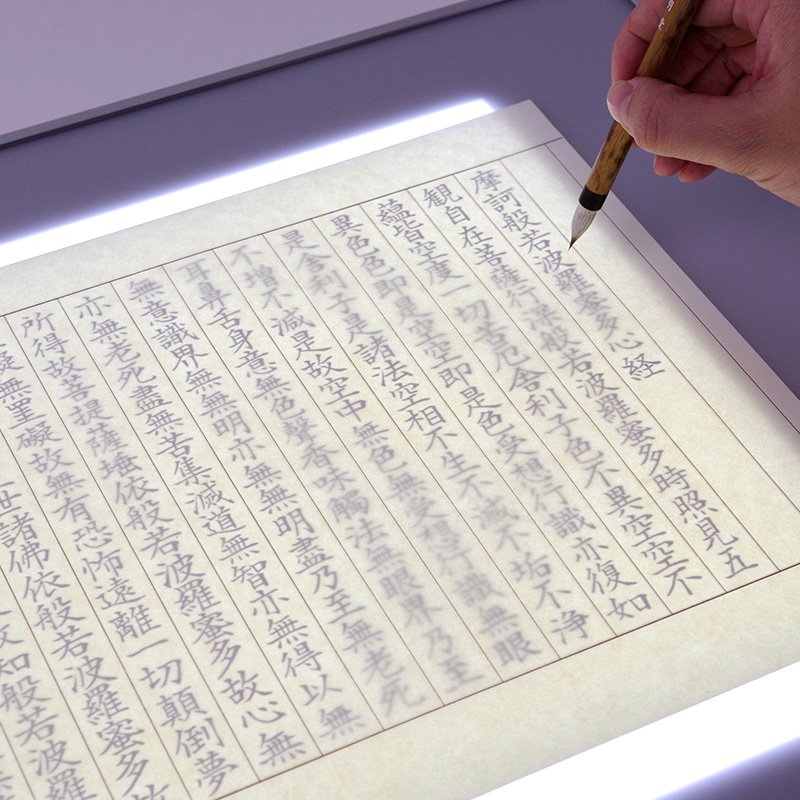 摩訶般若波羅蜜多心経
観自在菩薩行深般若波羅蜜多時照見五
蘊皆空度一切苦厄舎利子色不異空空不
異色色即是空空即是色受想行識亦復如
是舎利子是諸法空相不生不滅不垢不浄
不増不減是故空中無色無受想行識無眼
耳鼻舌身意無色聲香味觸法無眼界乃至
無意識界無無明亦無無明盡乃至無老死
亦無老死盡無苦集滅道無智亦無得以無
所得故菩提薩埵依般若波羅蜜多故心無
礙無罣礙故無有恐怖遠離一切顛倒夢
世諸佛依般若波羅蜜多故
知般若波羅